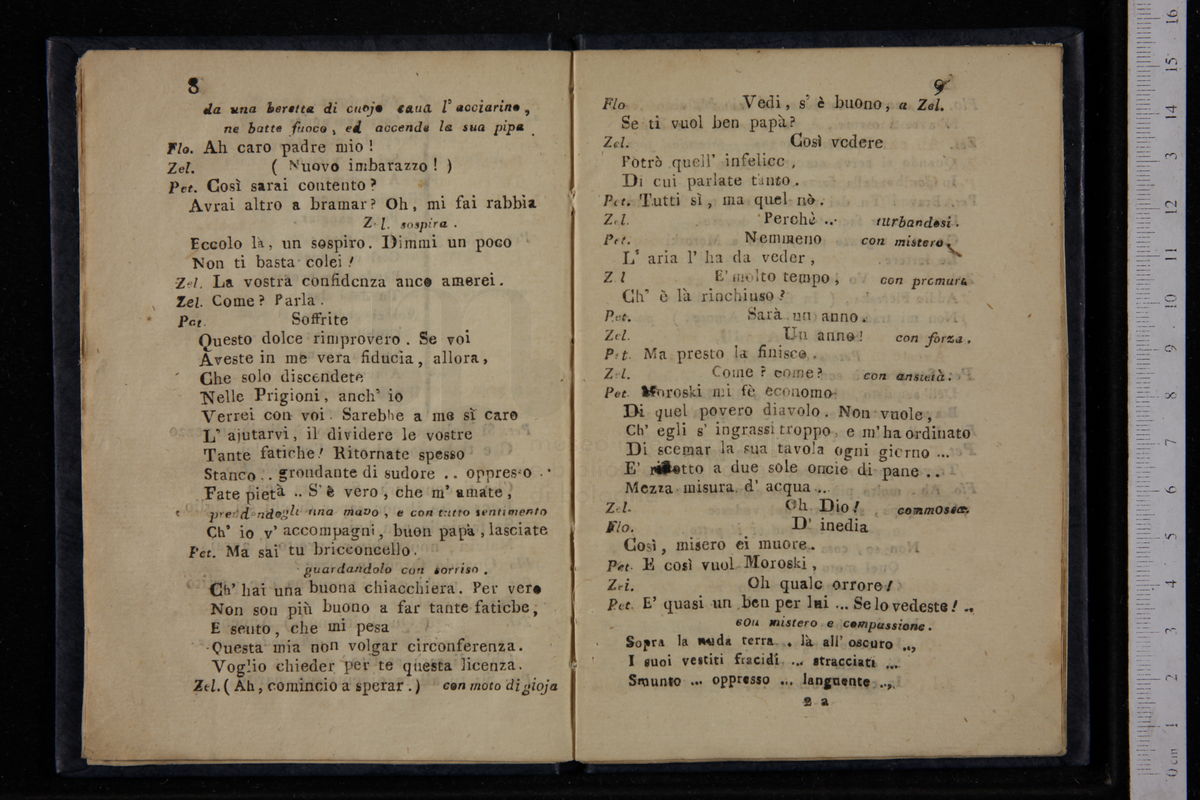 8
da una beretta di cuojo cava l' acciarino,
ne batte fuoco, ed accende la sua pipa.
Flo. Ah caro padre mio!
Zel. ( Nuovo imbarazzo! )
Pet. Così sarai contento?
Avrai altro a bramar? Oh, mi fai rabbia
Zel. sospira.
Eccolo là, un sospiro. Dimmi un poco
Non ti basta colei!
Zel. La vostra confidenza anco amerei.
Zel. Come? Parla.
Pet. Soffrite
Questo dolce rimprovero. Se voi
Aveste in me vera fiducia, allora,
Che solo discendete
Nelle Prigioni, anch' io
Verrei con voi. Sarebbe a me sì caro
L' ajutarvi, il dividere le vostre
Tante fatiche! Ritornate spesso
Stanco .. grondante di sudore .. oppresso ..
Fate pietà .. S' è vero, che m' amate,
prendendogli una mano, e con tutto sentimento
Ch' io v' accompagni, buon papà, lasciate
Pet. Ma sai tu bricconcello.
guardandolo con sorriso.
Ch' hai una buona chiacchiera. Per vero
Non son più buono a far tante fatiche,
E sento, che mi pesa
Questa mia non volgar circonferenza.
Voglio chieder per te questa licenza.
Zel. ( Ah, comincio a sperar. ) con moto di gioja
9
Flo Vedi, s' è buono, a Zel.
Se ti vuol ben papà?
Zel. Così vedere
Potrò quell' infelice,
Di cui parlate tanto.
Pet. Tutti sì, ma quel nò.
Zel. Perchè ... turbandosi.
Pet. Nemmeno con mistero.
L' aria l' ha da veder,
Zel E' molto tempo, con premura
Ch' è là rinchiuso?
Pet. Sarà un anno.
Zel. Un anno! con forza.
Pet. Ma presto la finisce.
Zel. Come? come? con ansietà.
Pet. Moroski mi fè economo
Di quel povero diavolo. Non vuole,
Ch' egli s' ingrassi troppo, e m' ha ordinato
Di scemar la sua tavola ogni giorno ...
E' ridotto a due sole oncie di pane ..
Mezza misura d' acqua ...
Zel. Oh Dio! commossa.
Flo. D' inedia
Così, misero ei muore.
Pet. E così vuol Moroski,
Zel. Oh quale orrore!
Pet. E' quasi un ben per lui ... Se lo vedeste! ..
con mistero e compassione.
Sopra la nuda terra . là all' oscuro ...,
I suoi vestiti fracidi ... stracciati ...
Smunto ... oppresso ... languente ...
2 a
0 cm 1 2 3 4 5 6 7 8 9 10 11 12 13 14 15 16